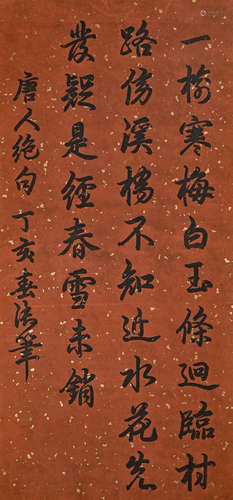 一樹寒梅白玉條迴臨村
路傍溪橋不知近水花先
發疑是經春雪未銷
唐人絶句丁亥春清筆